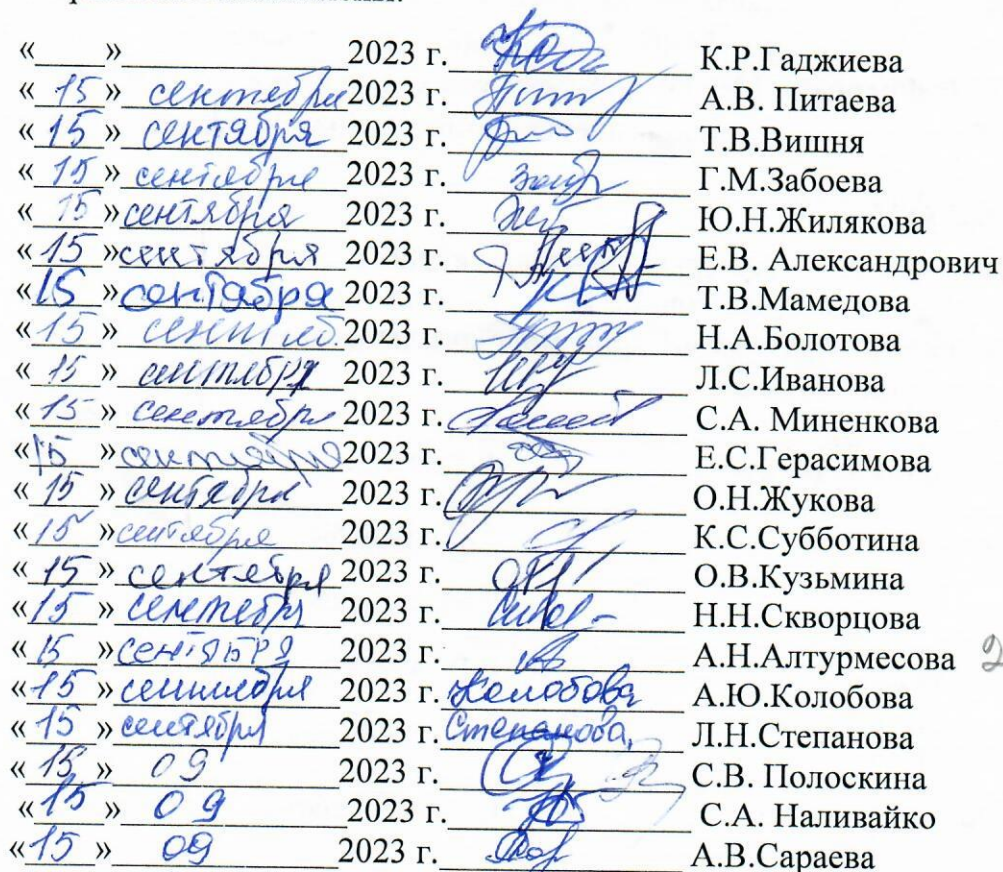 «____»____________2023 г.____________ К.Р.Гаджиева
« 15 » сентября 2023 г.____________ А.В. Питаева
« 15 » сентября 2023 г.____________ Т.В.Вишня
« 15 » сентября 2023 г.____________ Г.М.Забоева
« 15 » сентября 2023 г.____________ Ю.Н.Жилякова
« 15 » сентября 2023 г.____________ Е.В. Александрович
« 15 » сентября 2023 г.____________ Т.В.Мамедова
« 15 » сентяб. 2023 г.____________ Н.А.Болотова
« 15 » сентября 2023 г.____________ Л.С.Иванова
« 15 » сентября 2023 г.____________ С.А. Миненкова
« 15 » сентября 2023 г.____________ Е.С.Герасимова
« 15 » сентября 2023 г.____________ О.Н.Жукова
« 15 » сентября 2023 г.____________ К.С.Субботина
« 15 » сентября 2023 г.____________ О.В.Кузьмина
« 15 » сентября 2023 г.____________ Н.Н.Скворцова
« 15 » сентября 2023 г.____________ А.Н.Алтурмесова
« 15 » сентября 2023 г. Колобова А.Ю.Колобова
« 15 » сентября 2023 г. Степанова Л.Н.Степанова
« 15 » 09 2023 г.____________ С.В. Полоскина
« 15 » 09 2023 г.____________ С.А. Наливайко
« 15 » 09 2023 г.____________ А.В.Сараева